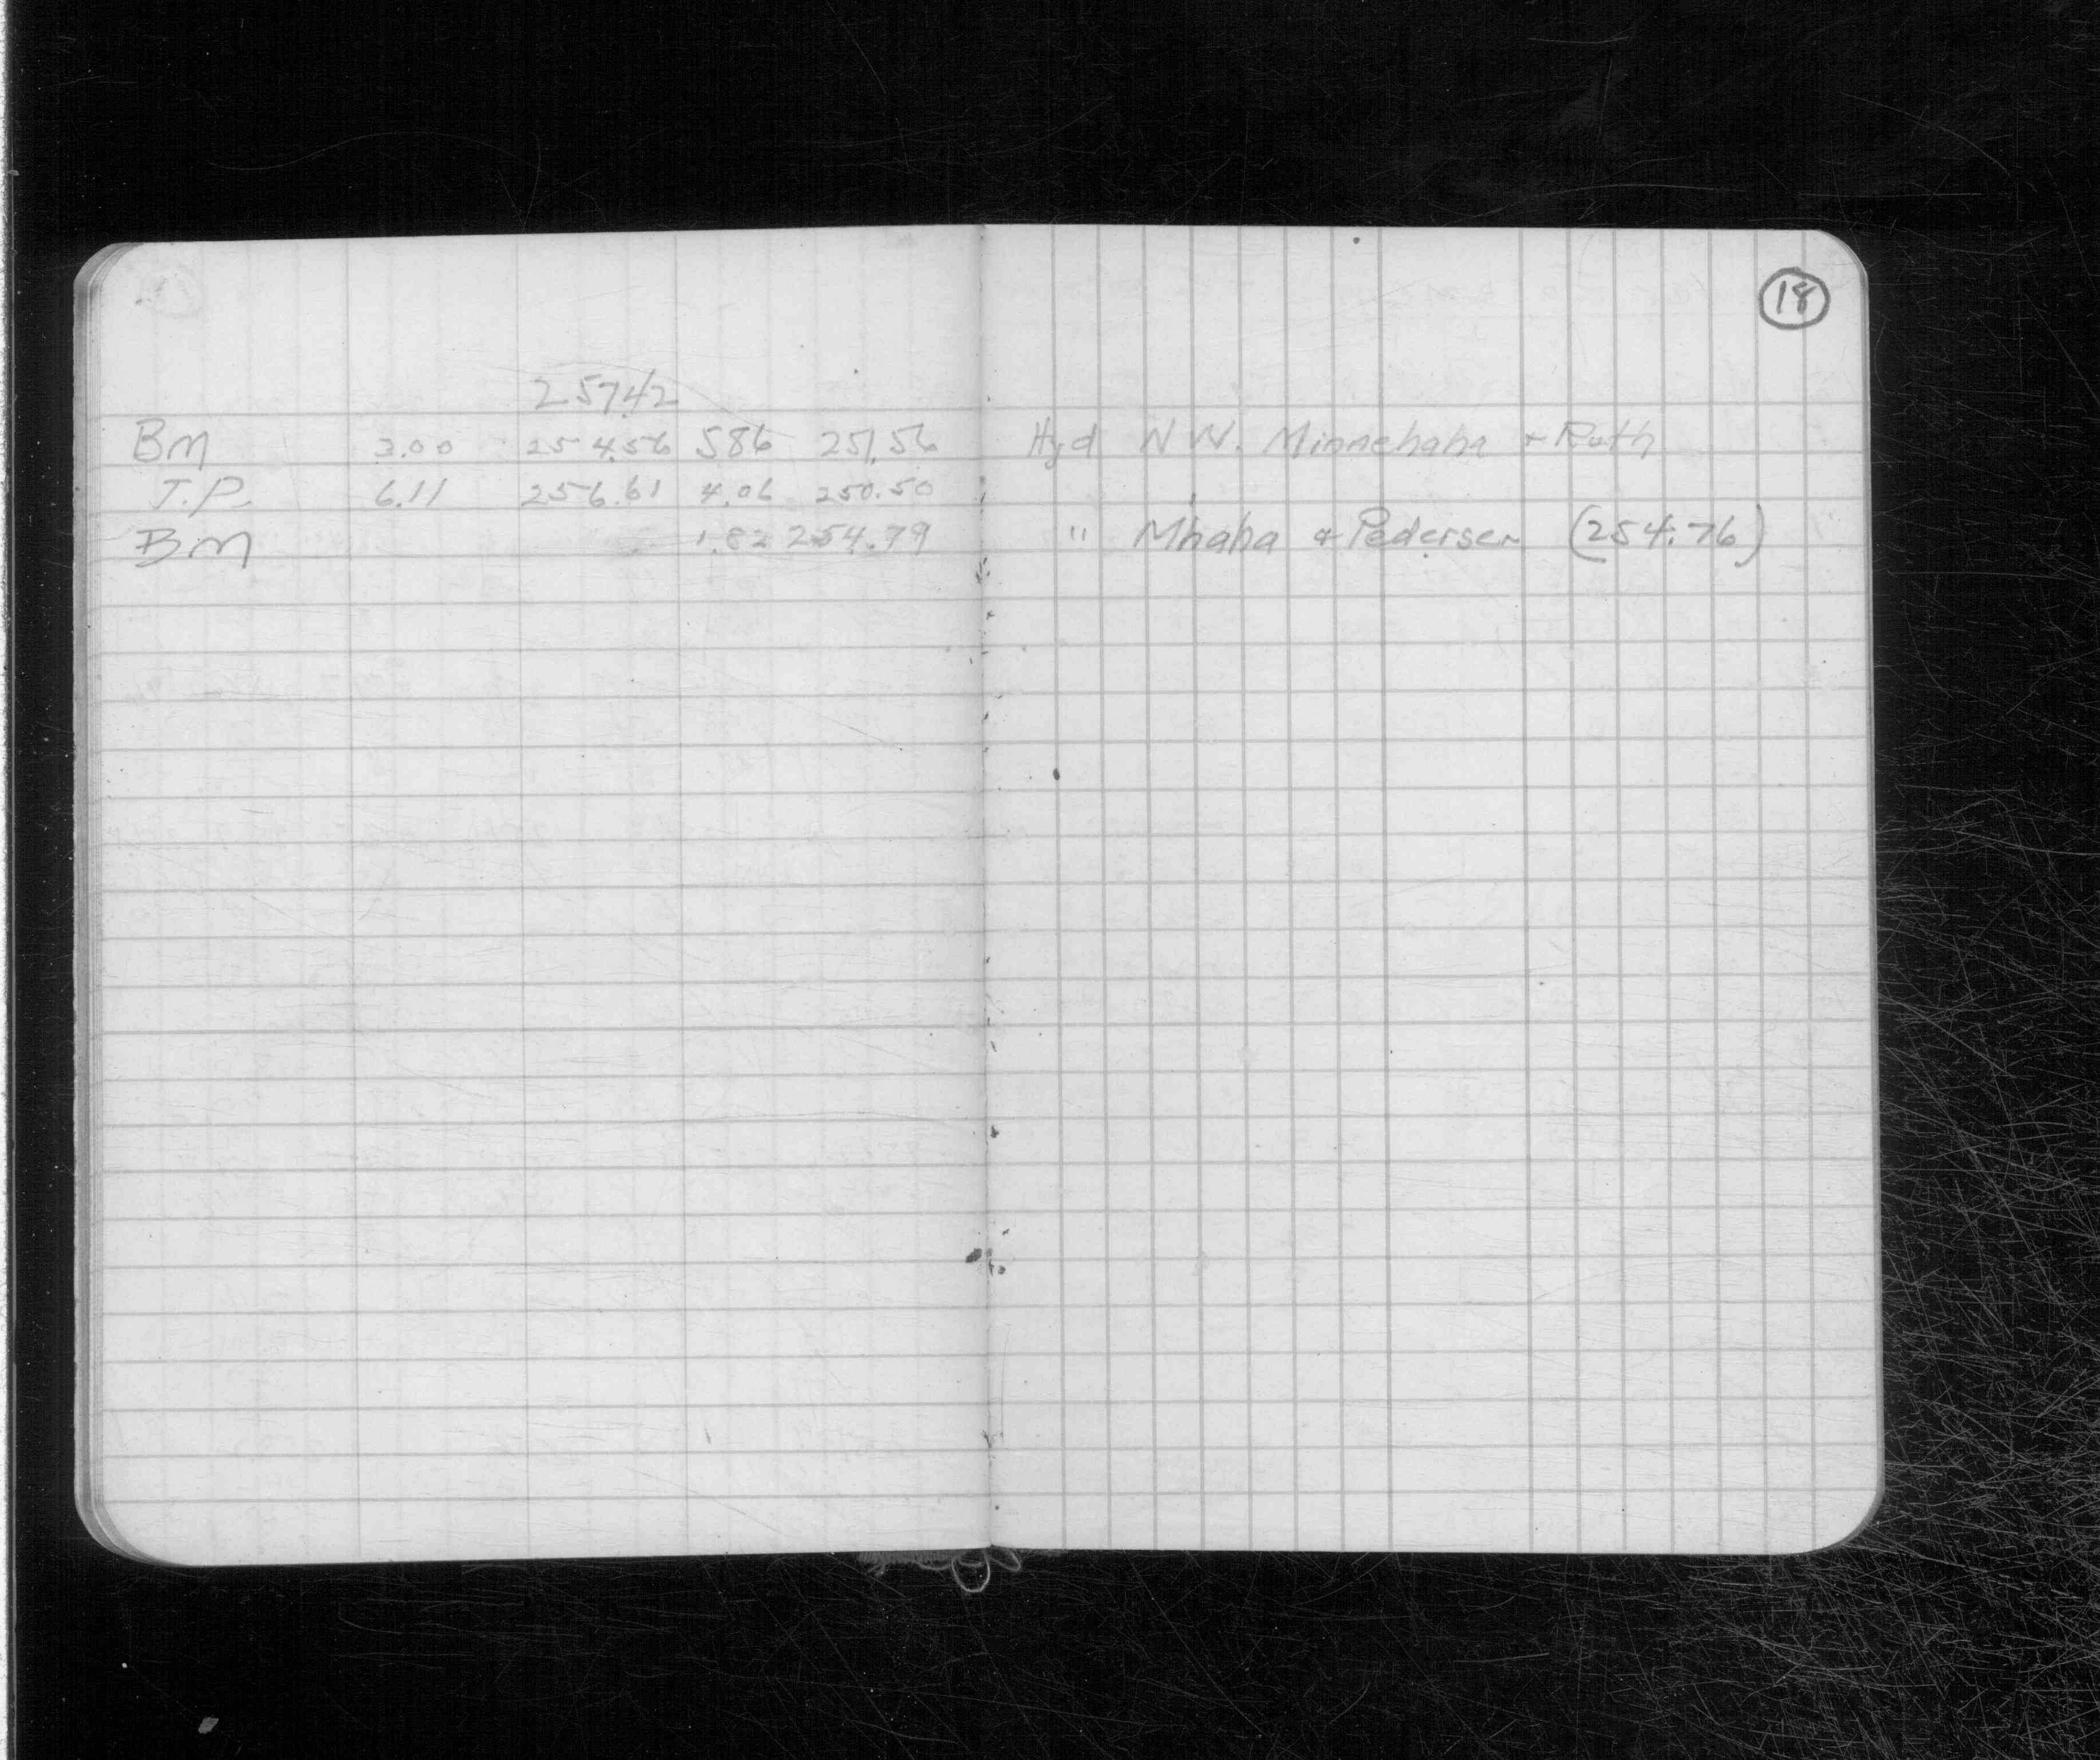 18
257.42
BM 3.00 254.56 5.86 251.56 Hyd N W. Minnehaha + Ruth
T.P. 6.11 256.61 4.06 250.50
BM 1.82 254.79 " Mhaha & Pedersen (254.76)